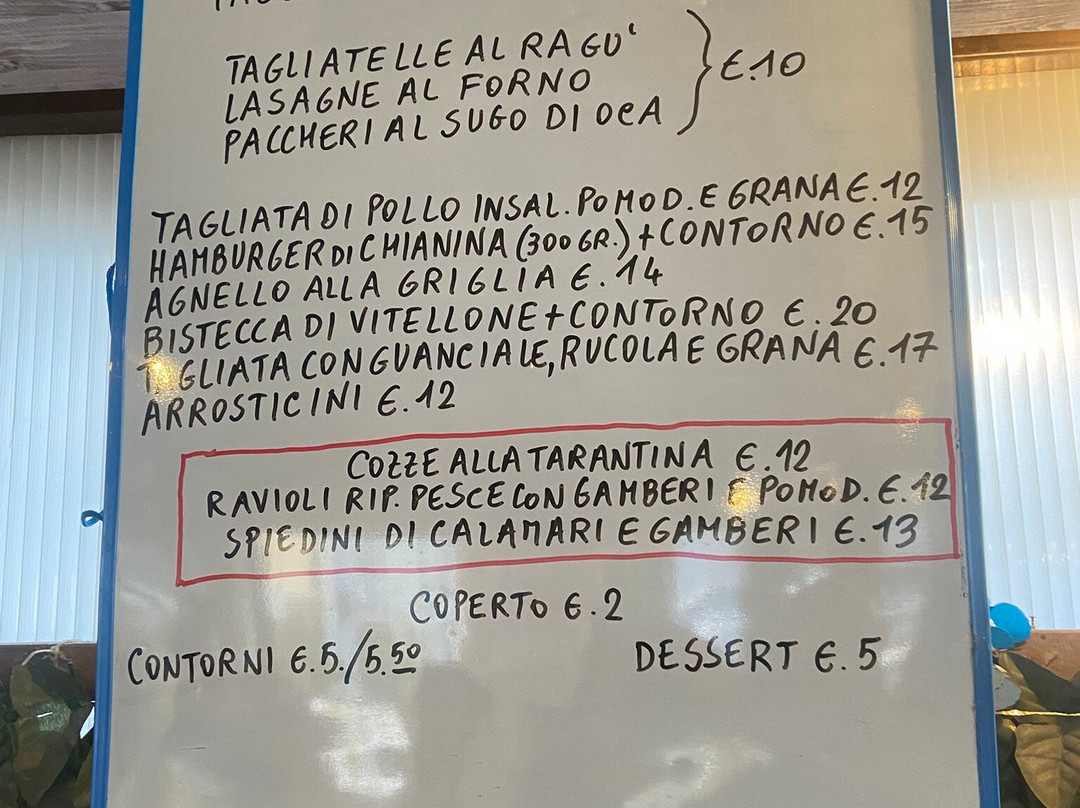 TAGLIATELLE AL RAGU'
LASAGNE AL FORNO
PACCHERI AL SUGO DI OCA
€.10
TAGLIATA DI POLLO INSAL. POMOD. E GRANA €.12
HAMBURGER DI CHIANINA (300 GR.) + CONTORNO €.15
AGNELLO ALLA GRIGLIA €.14
BISTECCA DI VITELLONE + CONTORNO €.20
TAGLIATA CON GUANCIALE, RUCOLA E GRANA €.17
ARROSTICINI €.12
COZZE ALLA TARANTINA €.12
RAVIOLI RIP. PESCE CON GAMBERI E POMOD. €.12
SPIEDINI DI CALAMARI E GAMBERI €.13
COPERTO €.2
CONTORNI €.5./5.50
DESSERT €.5